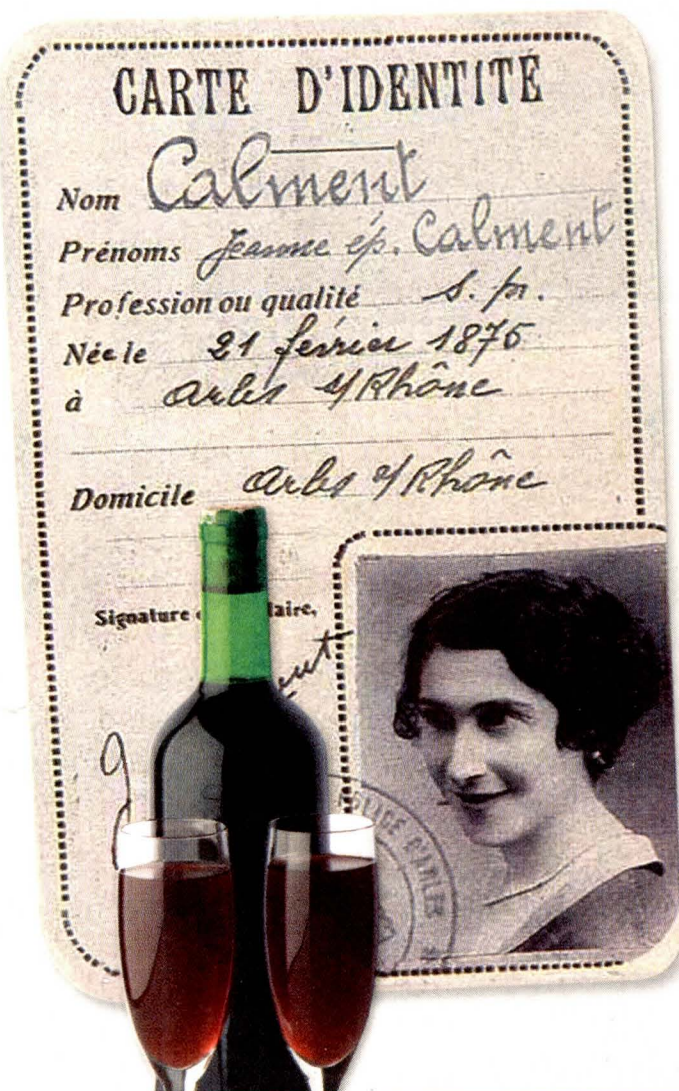 CARTE D'IDENTITÉ
Nom Calment
Prénoms Jeanne ép. Calment
Profession ou qualité S. pr.
Née le 21 février 1875
à Arles s/Rhône
Domicile Arles s/Rhône
Signature laire,
POLICE D'ARLES